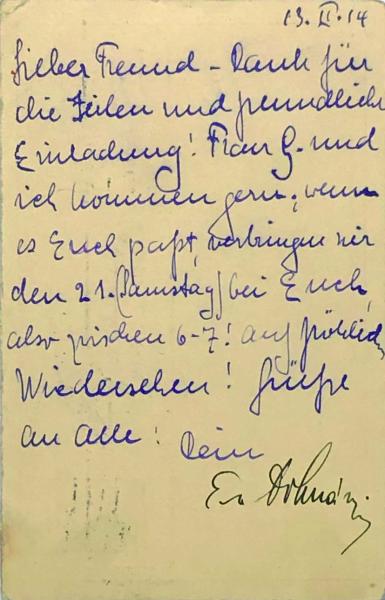 13. II. 14
Lieber Freund - Dank für
die Zeilen und freundliche
Einladung! Frau G. und
ich kommen gern; wenn
es Euch paßt, verbringen wir
den 21. (Samstag) bei Euch,
also zwischen 6-7! auf fröhliches
Wiedersehen! Grüße
an Alle! Dein
E. v Dohnányi